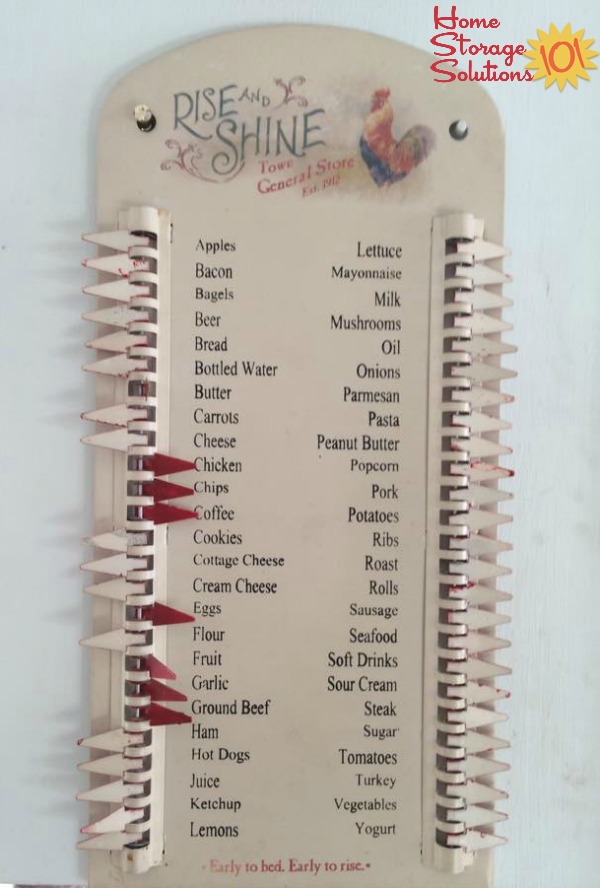 Home
Storage
Solutions 101
RISE AND
SHINE
General Store
Est. 1912
Apples
Bacon
Bagels
Beer
Bread
Bottled Water
Butter
Carrots
Cheese
Chicken
Chips
Coffee
Cookies
Cottage Cheese
Cream Cheese
Eggs
Flour
Fruit
Garlic
Ground Beef
Ham
Hot Dogs
Juice
Ketchup
Lemons
Lettuce
Mayonnaise
Milk
Mushrooms
Oil
Onions
Parmesan
Pasta
Peanut Butter
Popcorn
Pork
Potatoes
Ribs
Roast
Rolls
Sausage
Seafood
Soft Drinks
Sour Cream
Steak
Sugar
Tomatoes
Turkey
Vegetables
Yogurt
Early to bed. Early to rise.